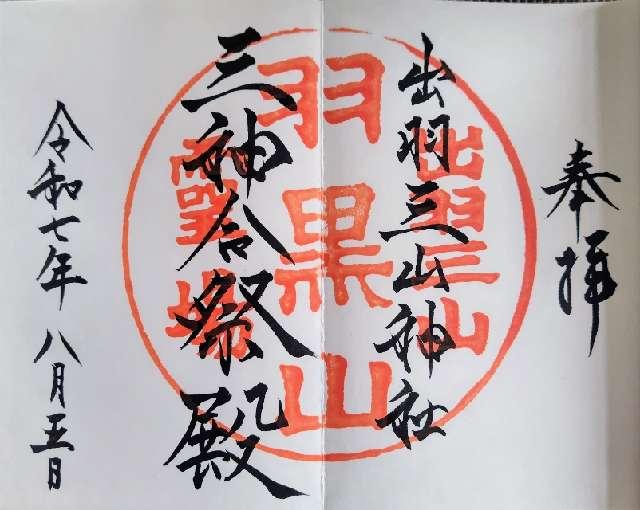 奉拝
出羽三山神社
三神合祭殿
令和七年 八月五日
出羽三山
羽黒山
霊場